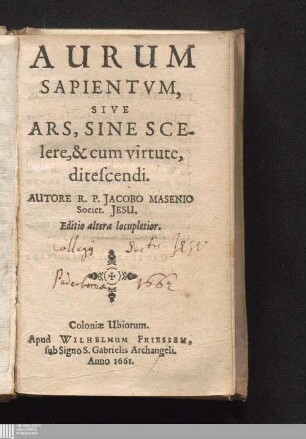 AURUM
SAPIENTVM,
SIVE
ARS, SINE SCE-
lere, & cum virtute,
ditescendi.
AUTORE R. P. JACOBO MASENIO
Societ. JESU.
Editio altera locupletior.
Collegij Soctis Jesu
Paderbornæ 1662
Coloniæ Ubiorum.
Apud WILHELMUM FRIESSEM,
sub Signo S. Gabrielis Archangeli.
Anno 1661.